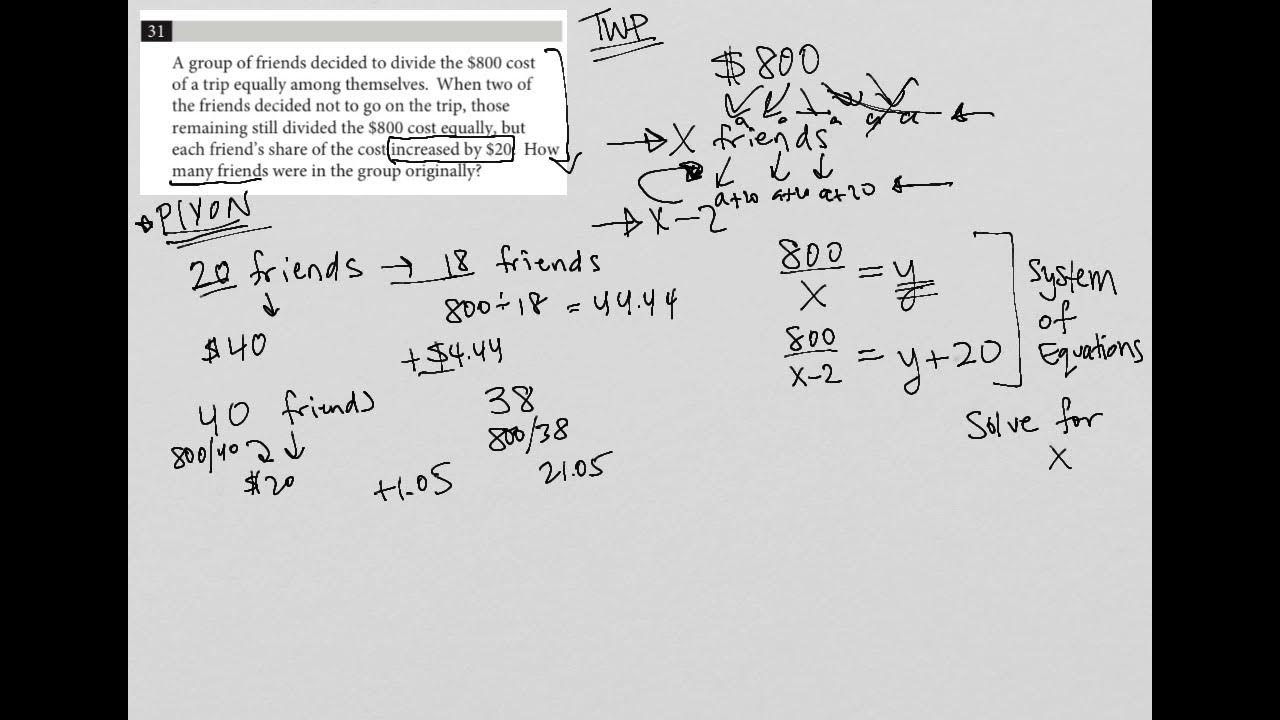 31
A group of friends decided to divide the $800 cost
of a trip equally among themselves. When two of
the friends decided not to go on the trip, those
remaining still divided the $800 cost equally, but
each friend's share of the cost increased by $20. How
many friends were in the group originally?
TWP
$800
a a a a a
X friends
a+20 a+20 a+20
X-2
PIYON
20 friends → 18 friends
800÷18 = 44.44
$40
+$4.44
40 friends
38
800/40
800/38
$20
+1.05
21.05
800/X = y
800/X-2 = y+20
System
of
Equations
Solve for
X